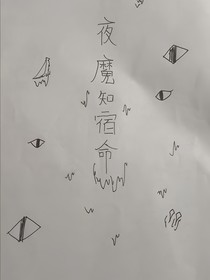 夜魔知宿命